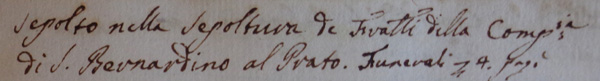 sepolto nella sepoltura de Fratlli della Comp:ia
di S. Bernardino al Prato. Funerali